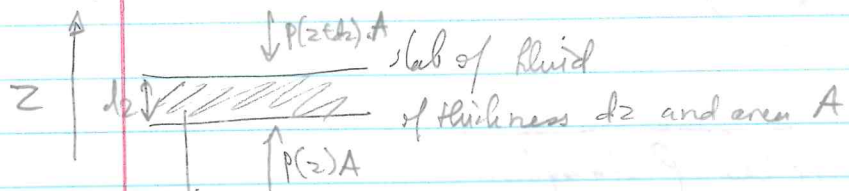 P(z+dz).A
slab of fluid
Z
dz
of thickness dz and area A
P(z)A